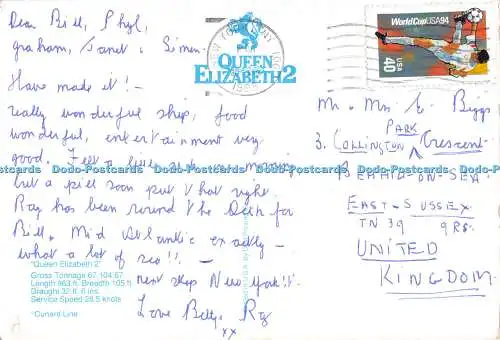 Dear Bill, Phyl,
graham, Janet & Simon.
Have made it! -
really wonderful ship, food
wonderful, entertainment very
good. Felt a little sick one morning
but a pill soon put that right.
Ray has been round the Deck for
Bill. Mid Atlantic exactly -
what a lot of sea!! -
next stop New York!!
Love Betty, Ray
xx
QUEEN
ELIZABETH 2
World Cup USA 94
40
USA
Mr. Mrs E. Biggs
3. COLLINGTON PARK Crescent
BEXHILL-ON-SEA
EAST-SUSSEX
TN39 9RS.
UNITED
KINGDOM.
"Queen Elizabeth 2"
Gross Tonnage 67,104.57
Length 963 ft. Breadth 105 ft
Draught 32 ft. 6 ins.
Service Speed 28.5 knots
"Cunard Line"
Dodo-Postcards Dodo-Postcards Dodo-Postcards Dodo-Postcards Dodo-Postcards